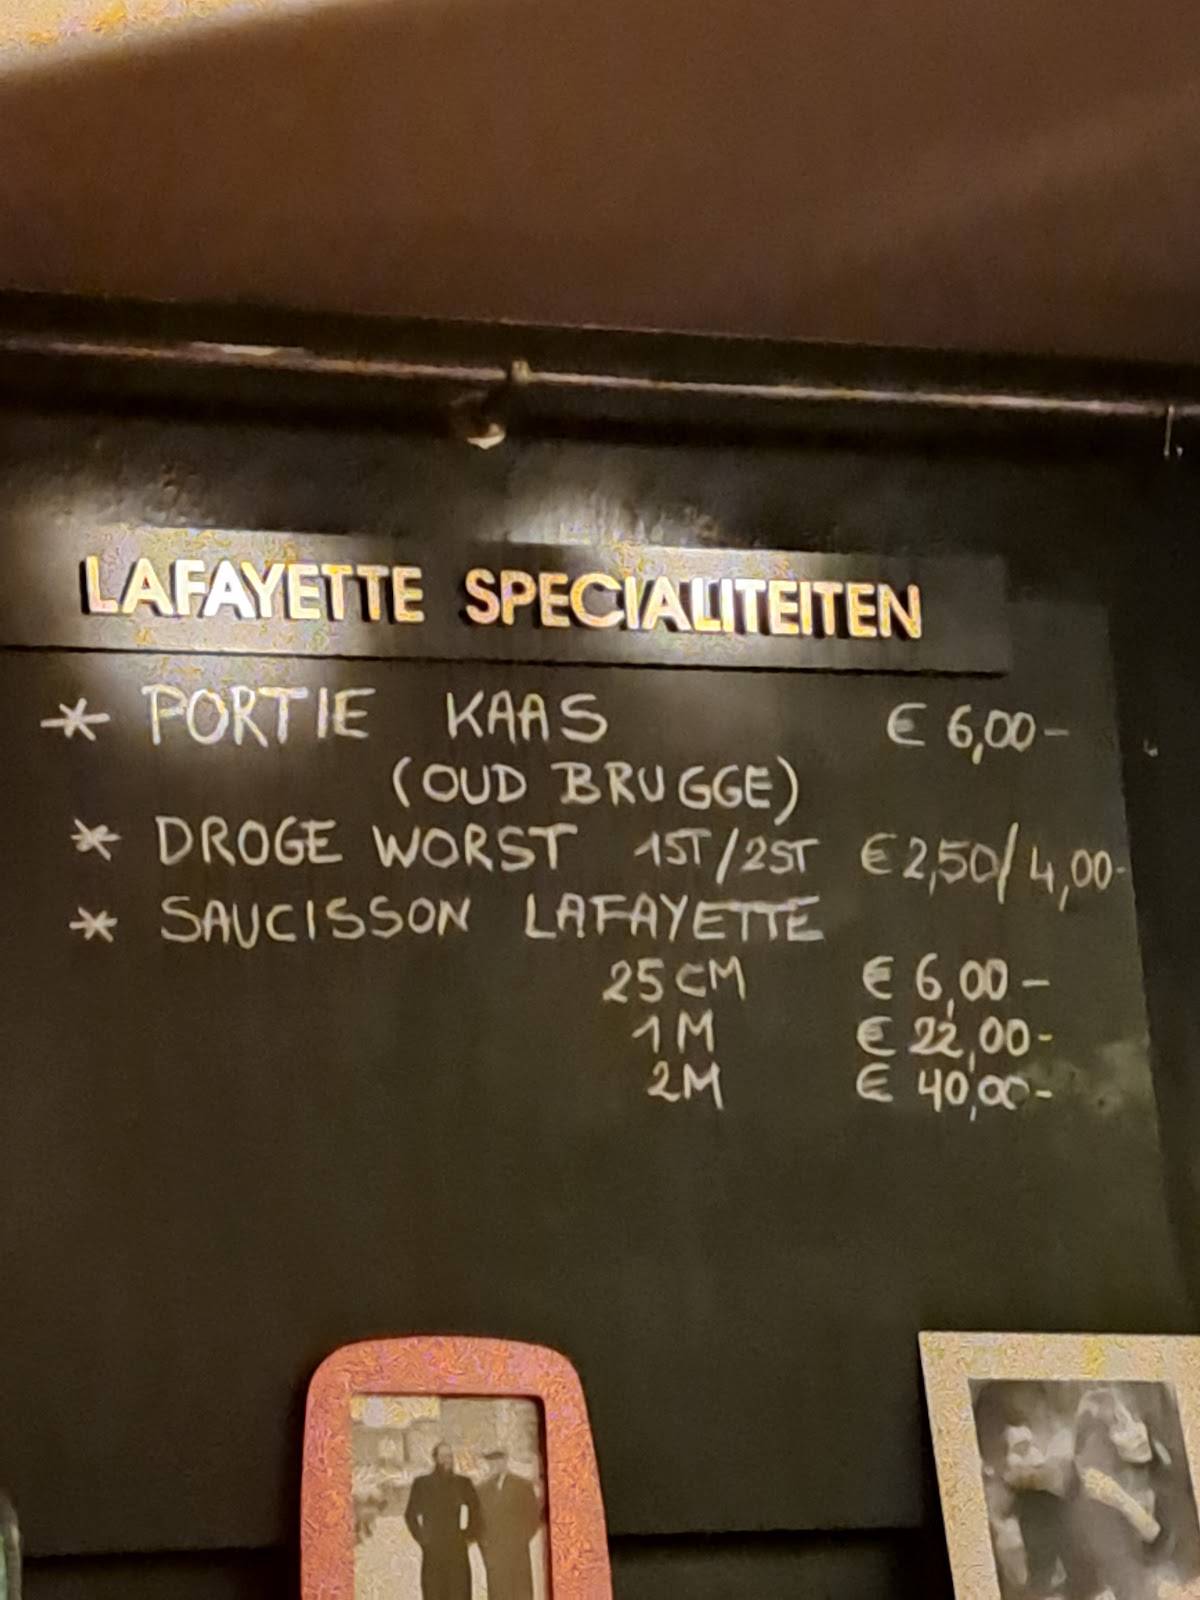 LAFAYETTE SPECIALITEITEN
* PORTIE KAAS € 6,00-
(OUD BRUGGE)
* DROGE WORST 1ST/2ST € 2,50/4,00-
* SAUCISSON LAFAYETTE
25CM € 6,00-
1M € 22,00-
2M € 40,00-